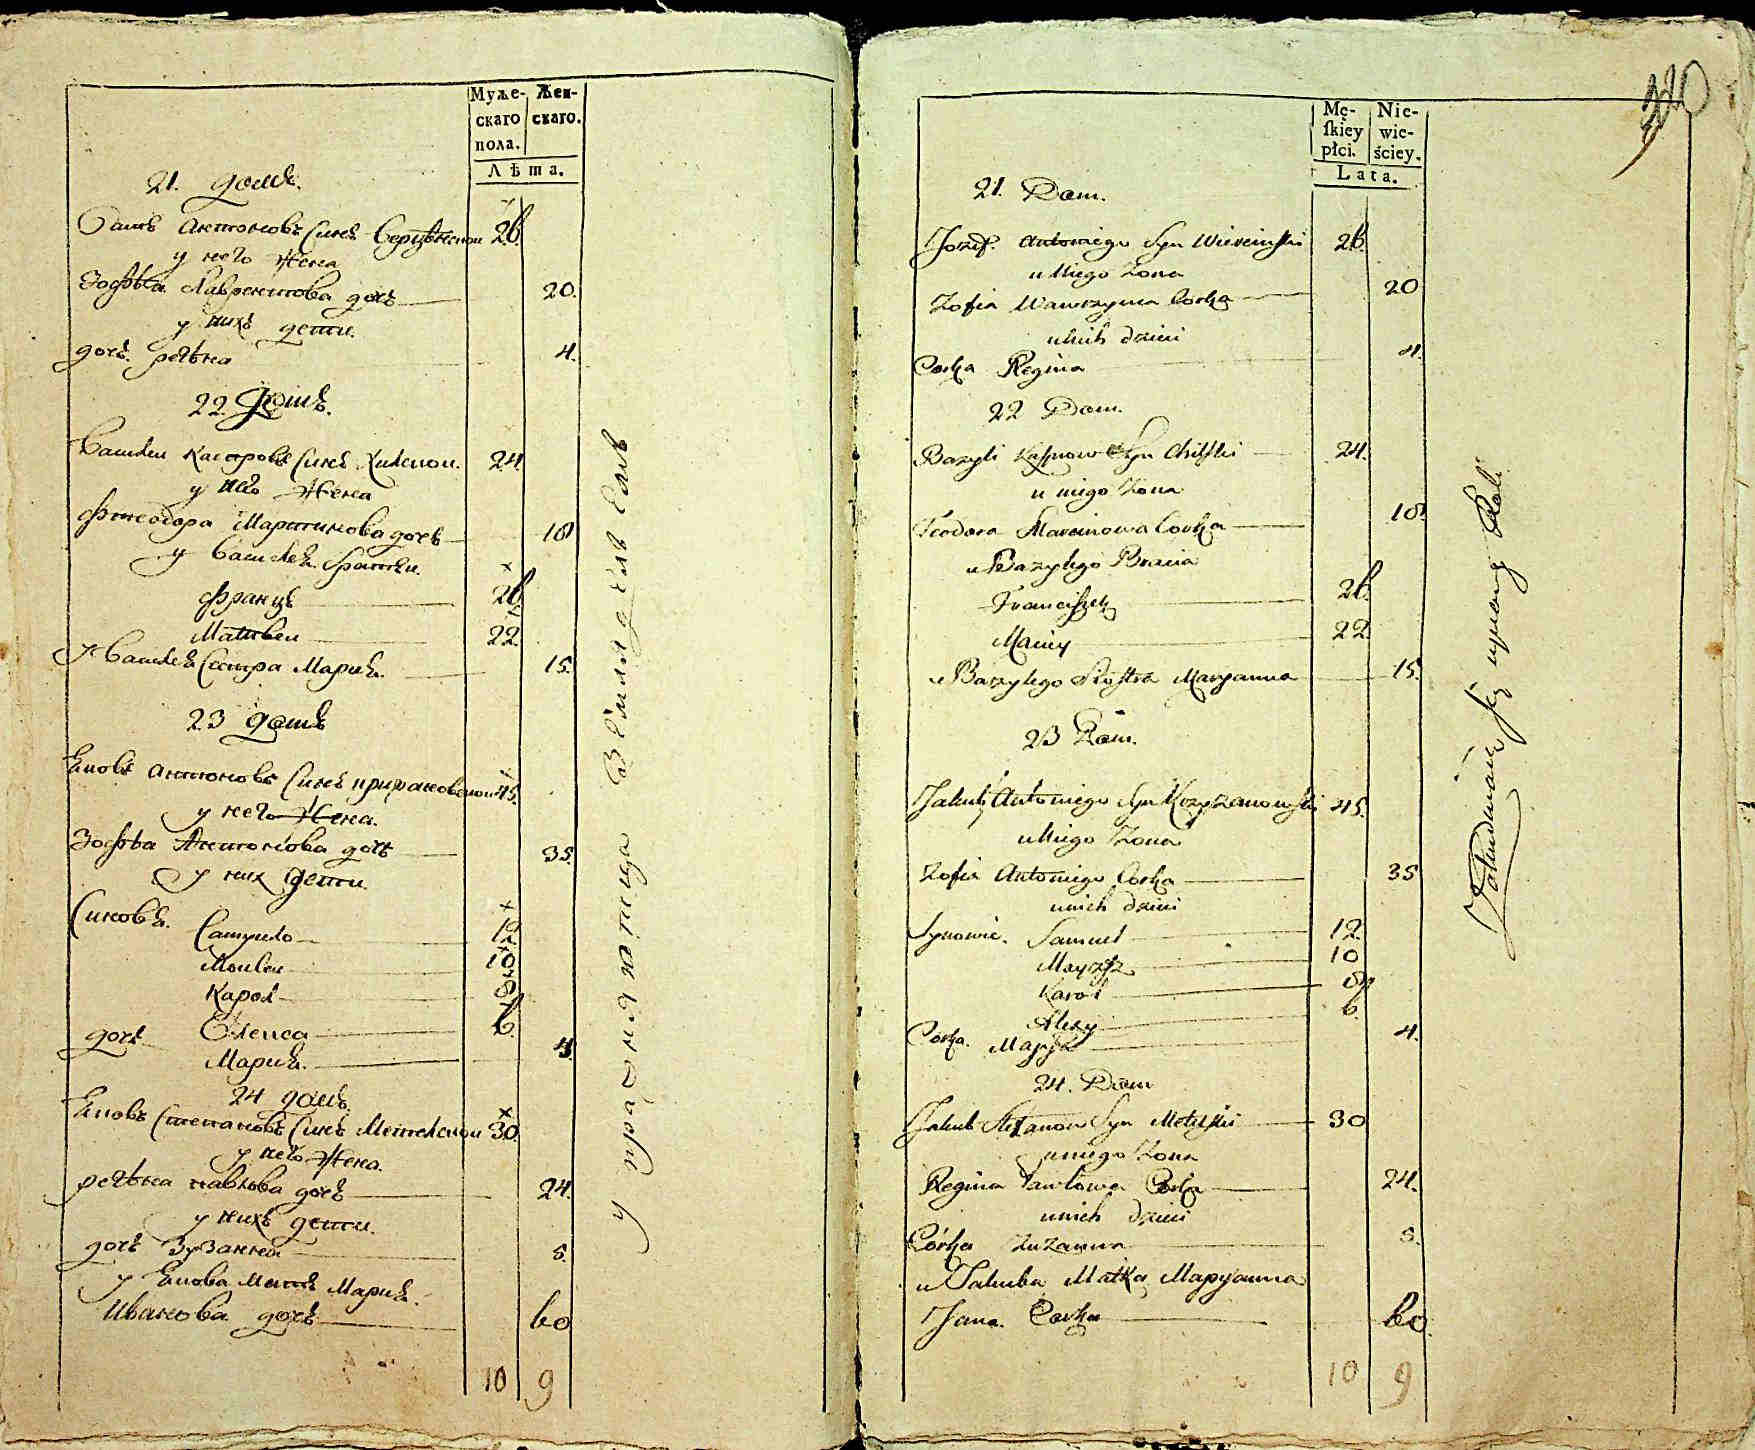 Муже-
скаго
пола.
Жен-
скаго.
Лѣта.
21. домъ.
Антоновъ Синъ 26.
у него жена
Зофѣя Лаврентова дочь 20.
у нихъ дети.
дочь. регѣна 4.
22. Домъ.
Василеи Касперовъ Синъ Хилскои. 24.
у него жена
Фтеодора Мартинова дочь 18
у Василея братя.
Францъ 26.
Матвеи 22.
у Василея Сестра Мария. 15.
23 домъ
Яковъ Антоновъ Синъ 45.
у него Жена.
Зофѣя Антонова дочь 35.
у них дети.
Синовя. Самуило 12.
10
Карол 8
Олекса 6.
дочь Мария. 4.
24 домъ.
Яковъ Степановъ Синъ Метелскои 30.
у него Жена.
регѣна павлова дочь 24.
у нихъ дети.
дочь Зузанна 5.
у Якова Мать Мария.
Иванова дочь 60
10 9
у пражняютца
220
Mę-
ſkiey
płci.
Nie-
wie-
ściey.
Lata.
21. Dom.
Jozef. Antoniego Syn Wierciński 26.
u Niego Żona
Zofia Wawrzyna Corka 20
u nich dzieci
Corka Regina 4.
22 Dom.
Bazyli Kasprow Syn Chilski 24.
u niego Żona
Teodora Marcinowa Corka 18.
u Bazylego Bracia
Franciszek 26.
Maciey 22.
u Bazylego Siostra Maryanna 15.
23 Dom.
Jakub Antoniego Syn Krzyżanowski 45.
u Niego Żona
Zofia Antoniego Corka 35
u nich dzieci
Synowie. Samuel 12.
10
Karol 8.
Alexy 6.
Corka. Maryia 4.
24. Dom
Jakub Stefanow Syn Metelski 30
u niego Żona
Regina Pawłowa Corka 24.
u nich dzieci
Córka Zuzanna 5.
u Jakuba Matka Maryanna
Jana Corka 60.
10 9
Zatrudniaią się uprawą Roli